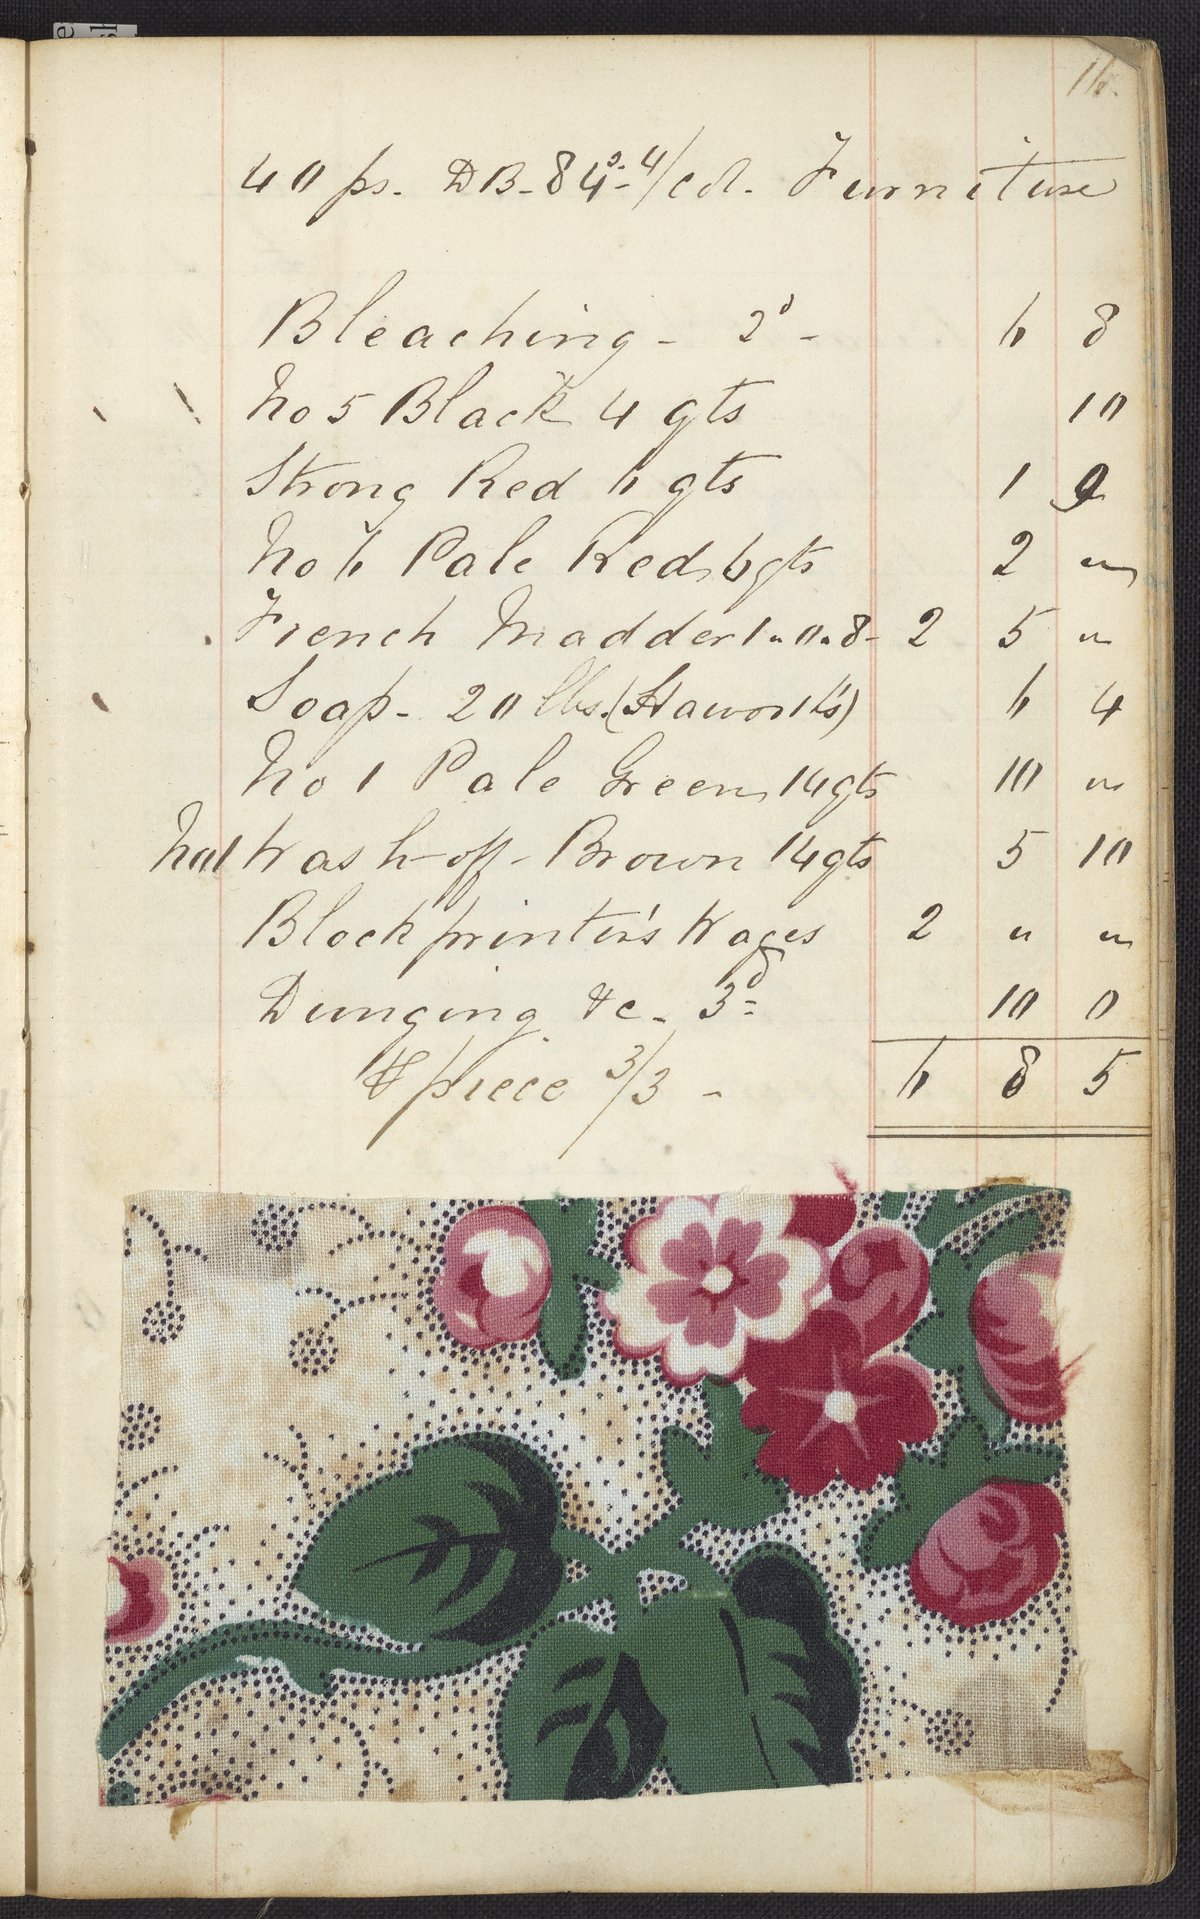 16.
40 ps. DB-84s-4/col. Furniture
Bleaching - 2d - 6 8
No 5 Black 4 gts 10
Strong Red 6 gts 1 9
No 6 Pale Red 6 gts 2 "
French Madder 1"0"8- 2 5 "
Soap - 20 lbs. (Haworth's) 6 4
No 1 Pale Green 14 gts 10 "
No 1 Wash-off-Brown 14 gts 5 10
Block printer's Wages 2 " "
Dunging &c - 3d = 10 0
₱ piece 3/3 - 6 8 5